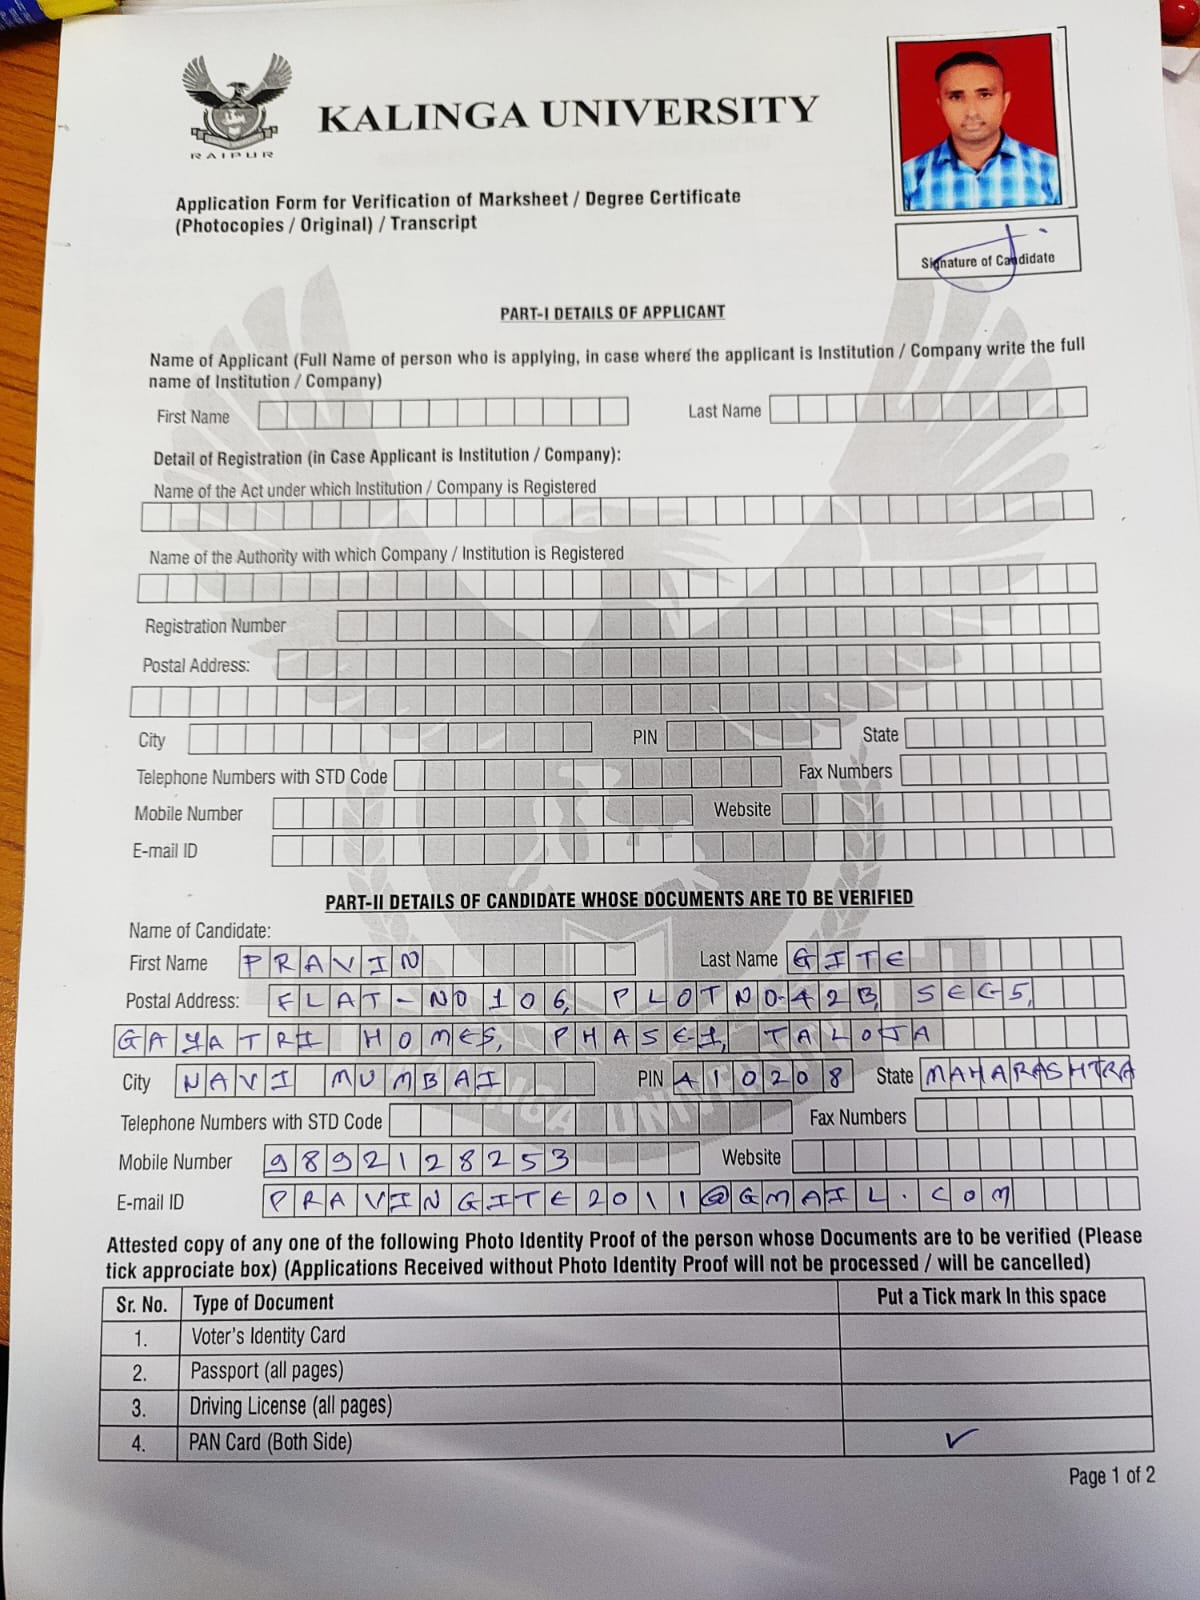 KALINGA UNIVERSITY
RAIPUR
Application Form for Verification of Marksheet / Degree Certificate
(Photocopies / Original) / Transcript
Signature of Candidate
PART-I DETAILS OF APPLICANT
Name of Applicant (Full Name of person who is applying, in case where the applicant is Institution / Company write the full
name of Institution / Company)
First Name Last Name
Detail of Registration (in Case Applicant is Institution / Company):
Name of the Act under which Institution / Company is Registered
Name of the Authority with which Company / Institution is Registered
Registration Number
Postal Address:
City PIN State
Telephone Numbers with STD Code Fax Numbers
Mobile Number Website
E-mail ID
PART-II DETAILS OF CANDIDATE WHOSE DOCUMENTS ARE TO BE VERIFIED
Name of Candidate:
First Name PRAVIN Last Name GITE
Postal Address: FLAT-NO 106, PLOTNO-42B, SEC-5,
GAYATRI HOMES, PHASE-1, TALOJA
City NAVI MUMBAI PIN 410208 State MAHARASHTRA
Telephone Numbers with STD Code Fax Numbers
Mobile Number 9892128253 Website
E-mail ID PRAVINGITE2011@GMAIL.COM
Attested copy of any one of the following Photo Identity Proof of the person whose Documents are to be verified (Please
tick approciate box) (Applications Received without Photo Identity Proof will not be processed / will be cancelled)
Sr. No. Type of Document Put a Tick mark In this space
1. Voter's Identity Card
2. Passport (all pages)
3. Driving License (all pages)
4. PAN Card (Both Side) ✓
Page 1 of 2